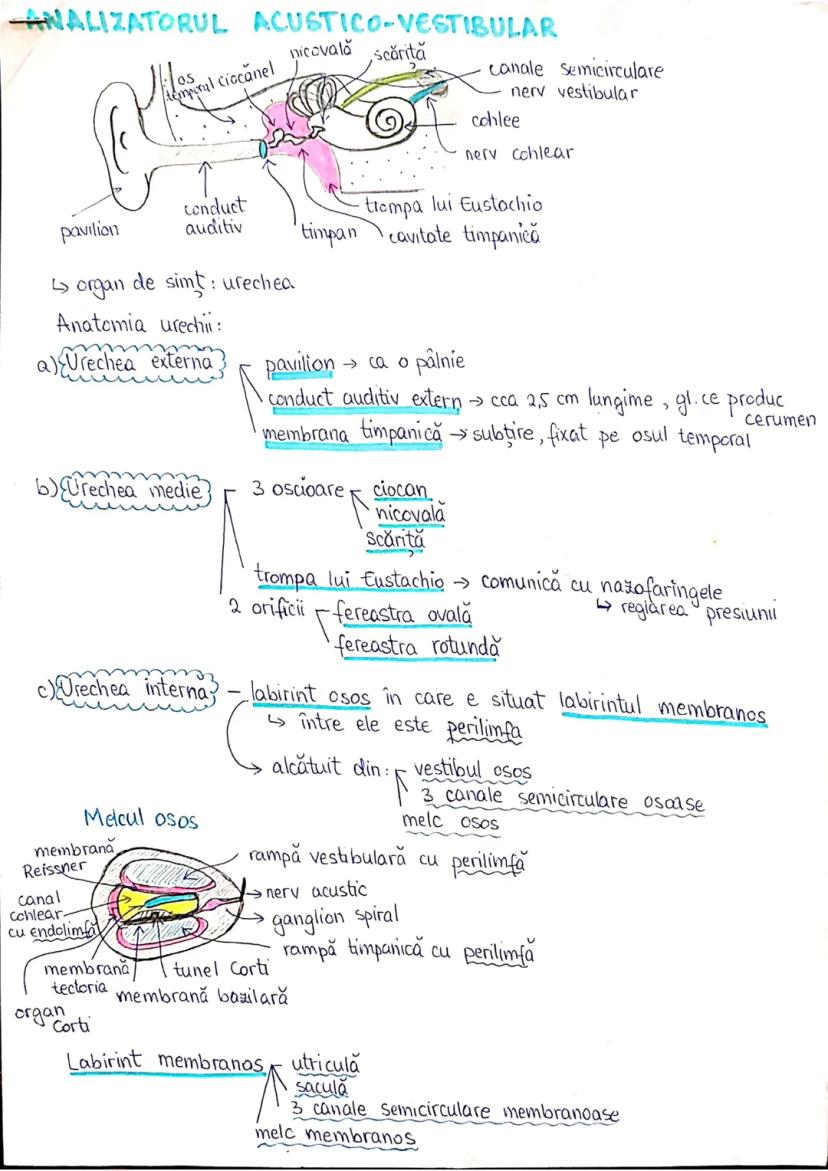 ANALIZATORUL ACUSTICO-VESTIBULAR
os temporal
ciocănel
nicovală
scăriță
canale semicirculare
nerv vestibular
cohlee
nerv cohlear
trompa lui Eustachio
cavitate timpanică
timpan
conduct auditiv
pavilion
↳ organ de simț: urechea
Anatomia urechii:
a) Urechea externă
pavilion → ca o pâlnie
conduct auditiv extern → cca 2,5 cm lungime, gl. ce produc cerumen
membrana timpanică → subțire, fixat pe osul temporal
b) Urechea medie
3 oscioare
ciocan
nicovală
scăriță
trompa lui Eustachio → comunică cu nazofaringele
↳ reglarea presiunii
2 orificii
fereastra ovală
fereastra rotundă
c) Urechea internă – labirint osos în care e situat labirintul membranos
↳ între ele este perilimfa
→ alcătuit din: vestibul osos
3 canale semicirculare osoase
melc osos
Melcul osos
membrană Reissner
canal cohlear cu endolimfă
membrană tectoria
organ Corti
tunel Corti
membrană bazilară
rampă vestibulară cu perilimfă
nerv acustic
ganglion spiral
rampă timpanică cu perilimfă
Labirint membranos
utriculă
saculă
3 canale semicirculare membranoase
melc membranos